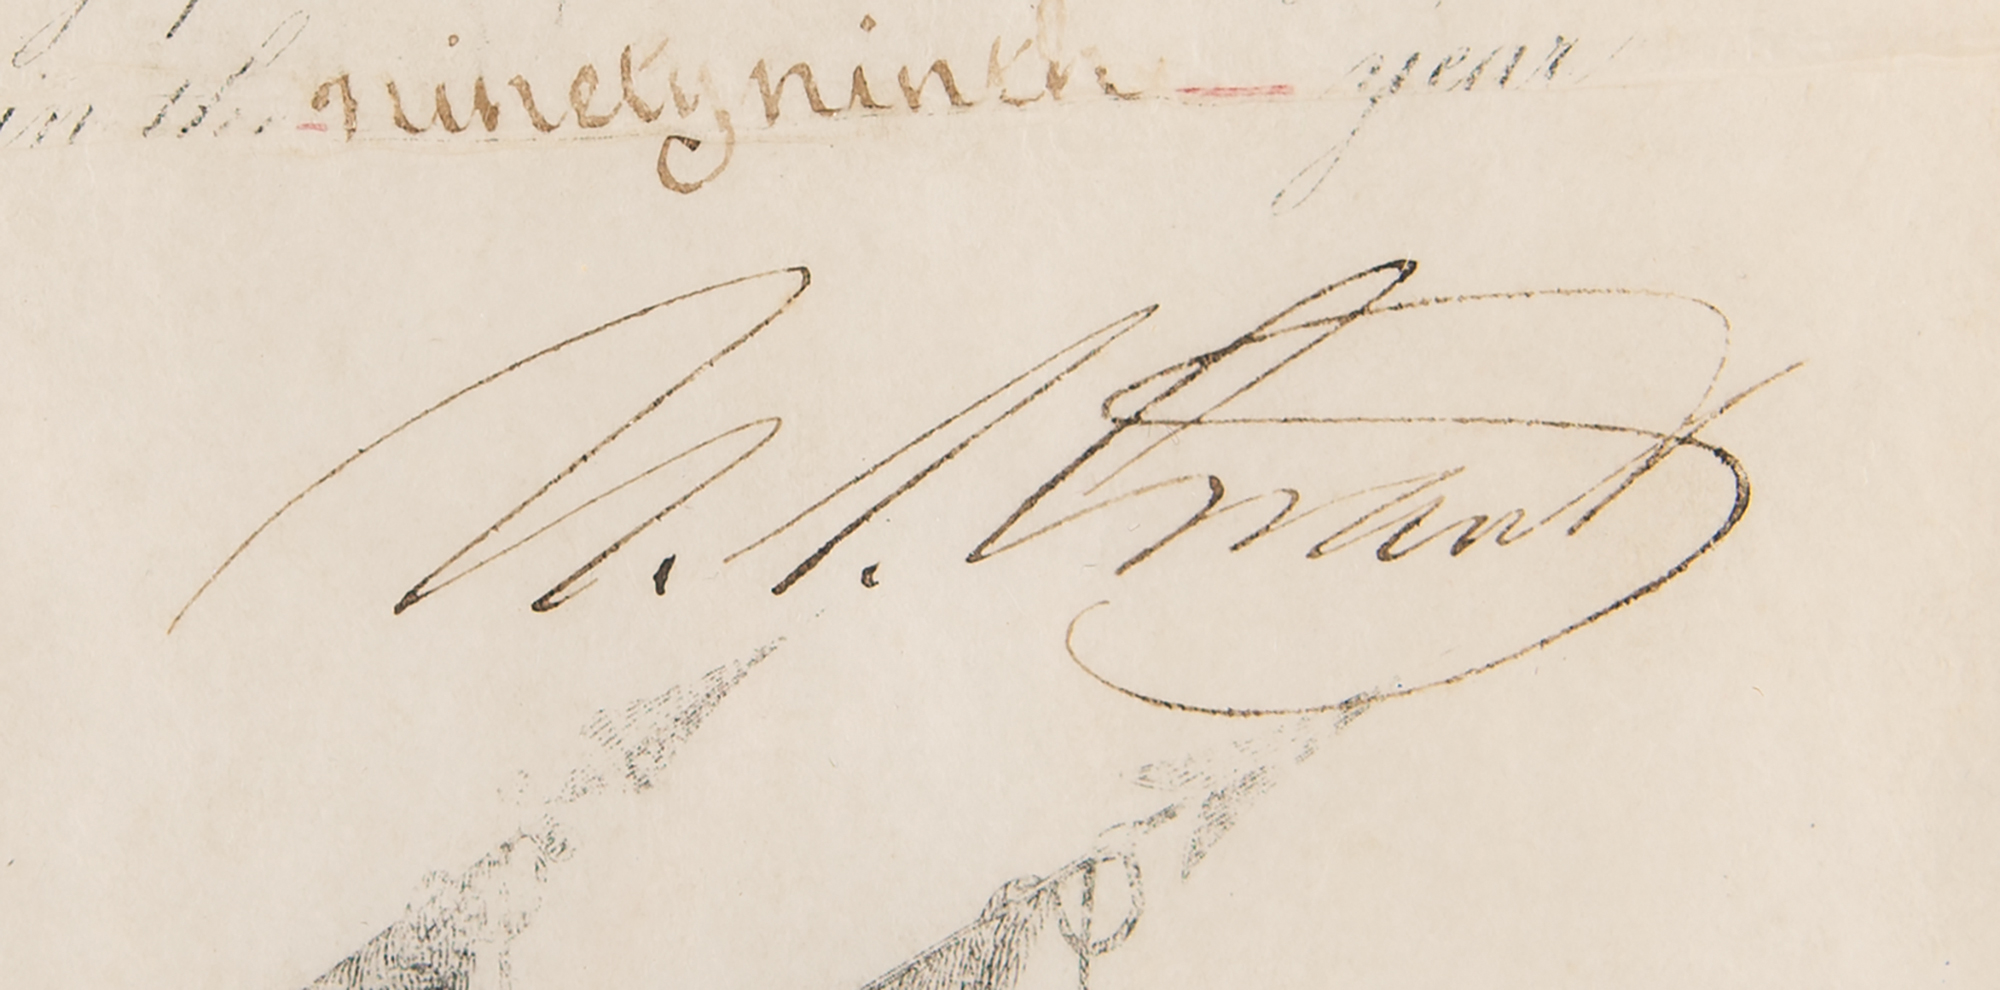 in the ninety ninth year
U. S. Grant